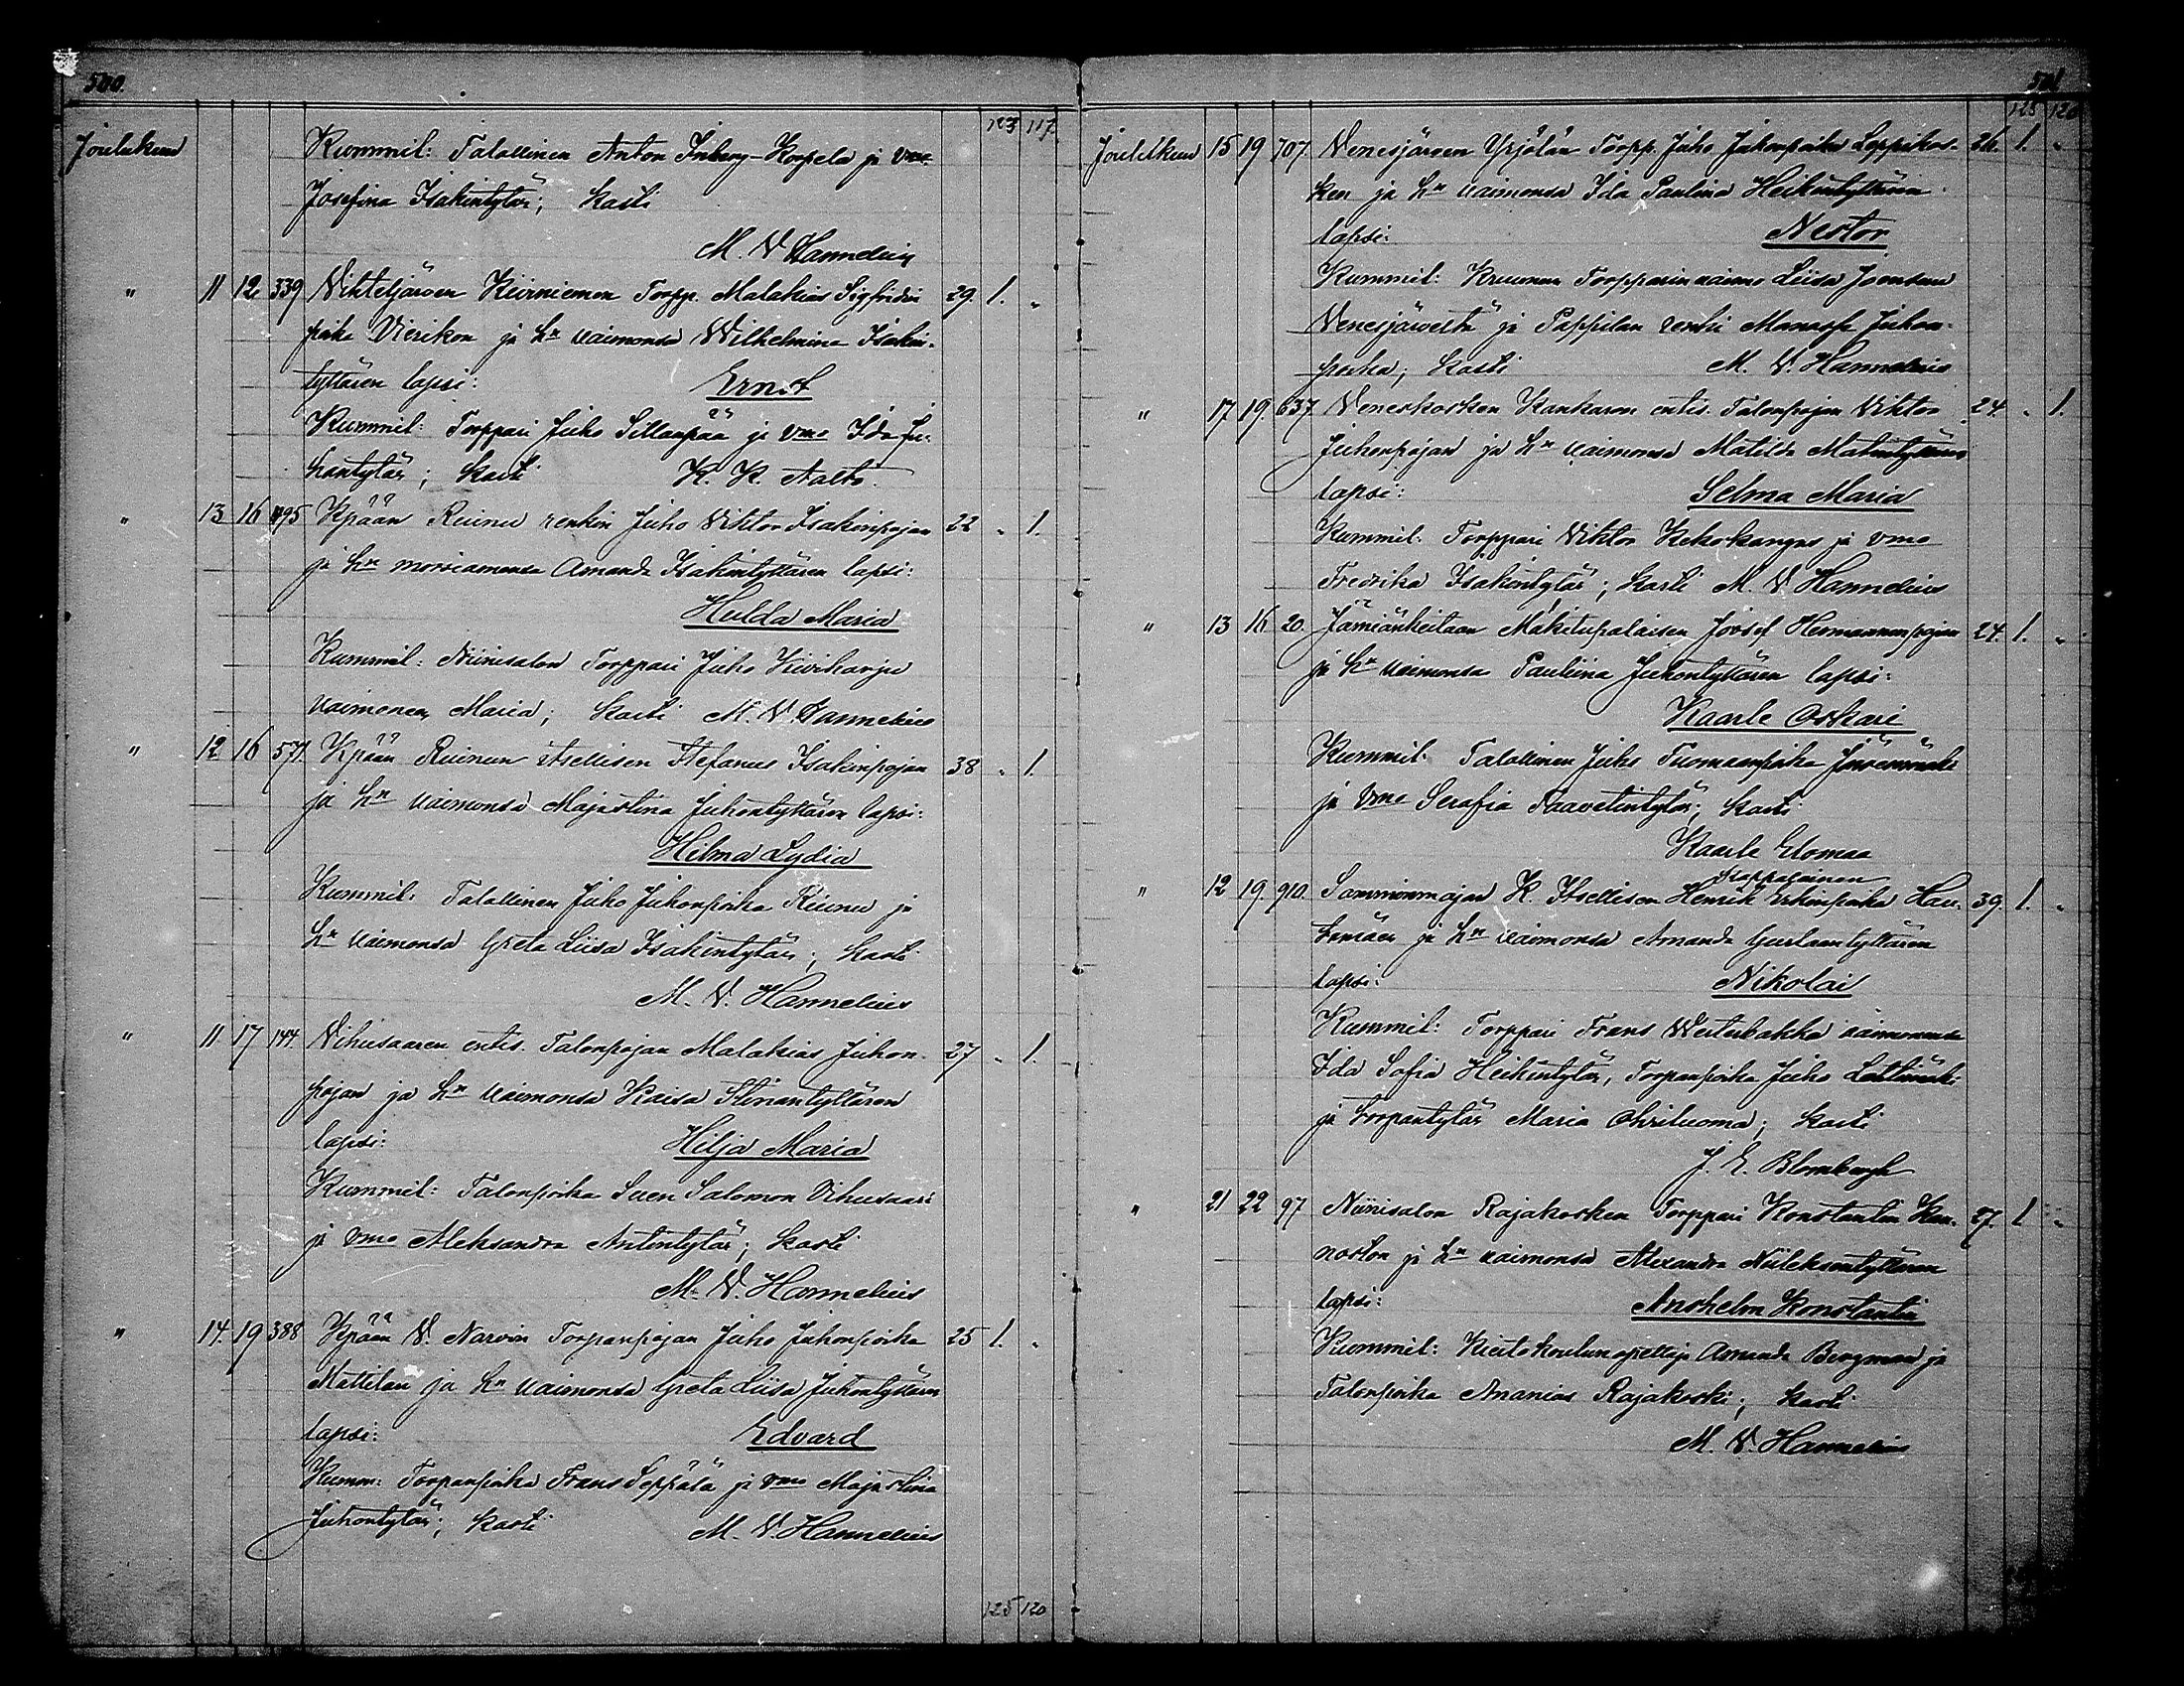 500.
123 117.
Joulukuu Kummit: Talollinen Anton Inberg-Korpela ja vmo
Josefina Isakintytär; kasti
M. V. Hannelius
" 11 12 339 Vihteljärven Kiirniemen Torpp. Malakias Sigfridin 29. 1. "
poika Vierikon ja hn vaimonsa Wilhelmina Isakin-
tyttären lapsi: Ernst
Kummit: Torppari Juho Sillanpää ja vmo Ida Ju-
hontytär; kasti K. K. Aalto.
" 13 16 1195 Kpään Riunu renkin Juho Viktor Isakinpojan 22 " 1.
ja hn morsiamensa Amanda Isakintyttären lapsi:
Hulda Maria
Kummit: Niinisalon Torppari Juho Kiviharju
vaimonen Maria; kasti M. V. Hannelius
" 12 16 571. Kpään Riunun itsellisen Stefanus Isakinpojan 38 " 1.
ja hn vaimonsa Majastina Juhontyttären lapsi:
Hilma Lydia
Kummit: Talollinen Juho Juhonpoika Riunu ja
hn vaimonsa Greta Liisa Isakintytär; kasti
M. V. Hannelius
" 11 17 144. Vihusaaren entis. Talonpojan Malakias Juhon- 27 " 1.
pojan ja hn vaimonsa Kaisa Stinantyttären
lapsi: Hilja Maria
Kummit: Talonpoika Sven Salomon Vihusaari
ja vmo Aleksandra Antintytär; kasti
M. V. Hannelius
" 14. 19 388 Kpään V. Narvin Torpanpojan Juho Juhonpoika 25 1. "
Mattilan ja hn vaimonsa Greta Liisa Juhontyttären
lapsi: Edvard
Kumm: Torpanpoika Frans Seppälä ja vmo Majastina
Juhontytär; kasti M. V. Hannelius
125 120
501
125 120
Joulukuu 15 19 707. Venesjärven Yrjölän Torpp. Juho Juhonpoika Leppikos- 26. 1. "
ken ja hn vaimonsa Ida Paulina Heikintyttären
lapsi: Nestor
Kummit: Kruunun Torpparin vaimo Liisa Joensuu
Venesjärveltä ja Pappilan renki Manasse Juhon-
poika; kasti M. V. Hannelius
" 17 19. 637 Veneskosken Kankaron entis. Talonpojan Viktor 24. " 1.
Juhonpojan ja hn vaimonsa Matilda Matintyttären
lapsi: Selma Maria
Kummit: Torppari Viktor Kehokangas ja vmo
Fredrika Isakintytär; kasti M. V. Hannelius
" 13 16 20. Jämiänkeitaan Mäkitupalaisen Joosef Hermanninpojan 24. 1. "
ja hn vaimonsa Pauliina Juhontyttären lapsi:
Kaarle Oskari
Kummit: Talollinen Juho Tuomaanpoika
ja vmo Serafia Taavetintytär; kasti
Kaarle Elomaa
Loppalainen
" 12 19. 910. Sammonmajan K. Itsellisen Henrik Erkinpoika Hau- 39. 1. "
ja hn vaimonsa Amanda Gustaantyttären
lapsi: Nikolai
Kummit: Torppari Frans Westerbakka vaimonensa
Ida Sofia Heikintytär, Torpanpoika Juho Lattimäki
ja torpantytär Maria Ohriluoma; kasti
J. E. Blombergh
" 21 22 97 Niinisalon Rajakosken Torppari Konstantin Kan- 27. 1 "
noston ja hn vaimonsa Alexandra Niileksentyttären
lapsi: Anshelm Konstantin
Kummit: Kiertokoulunopettaja Amanda Bergman ja
Talonpoika Ananias Rajakoski; kasti
M. V. Hannelius